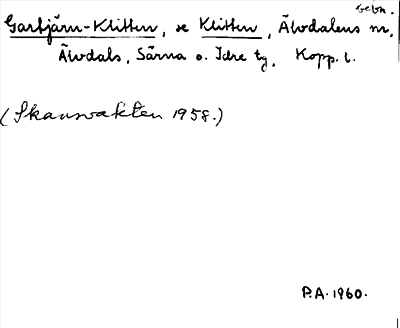 bebn.
Garbtjärn-Klitten, se Klitten, Älvdalens sn,
Älvdals, Särna o. Idre tg, Kopp. l.
(Skansvakten 1958.)
P.A. 1960.